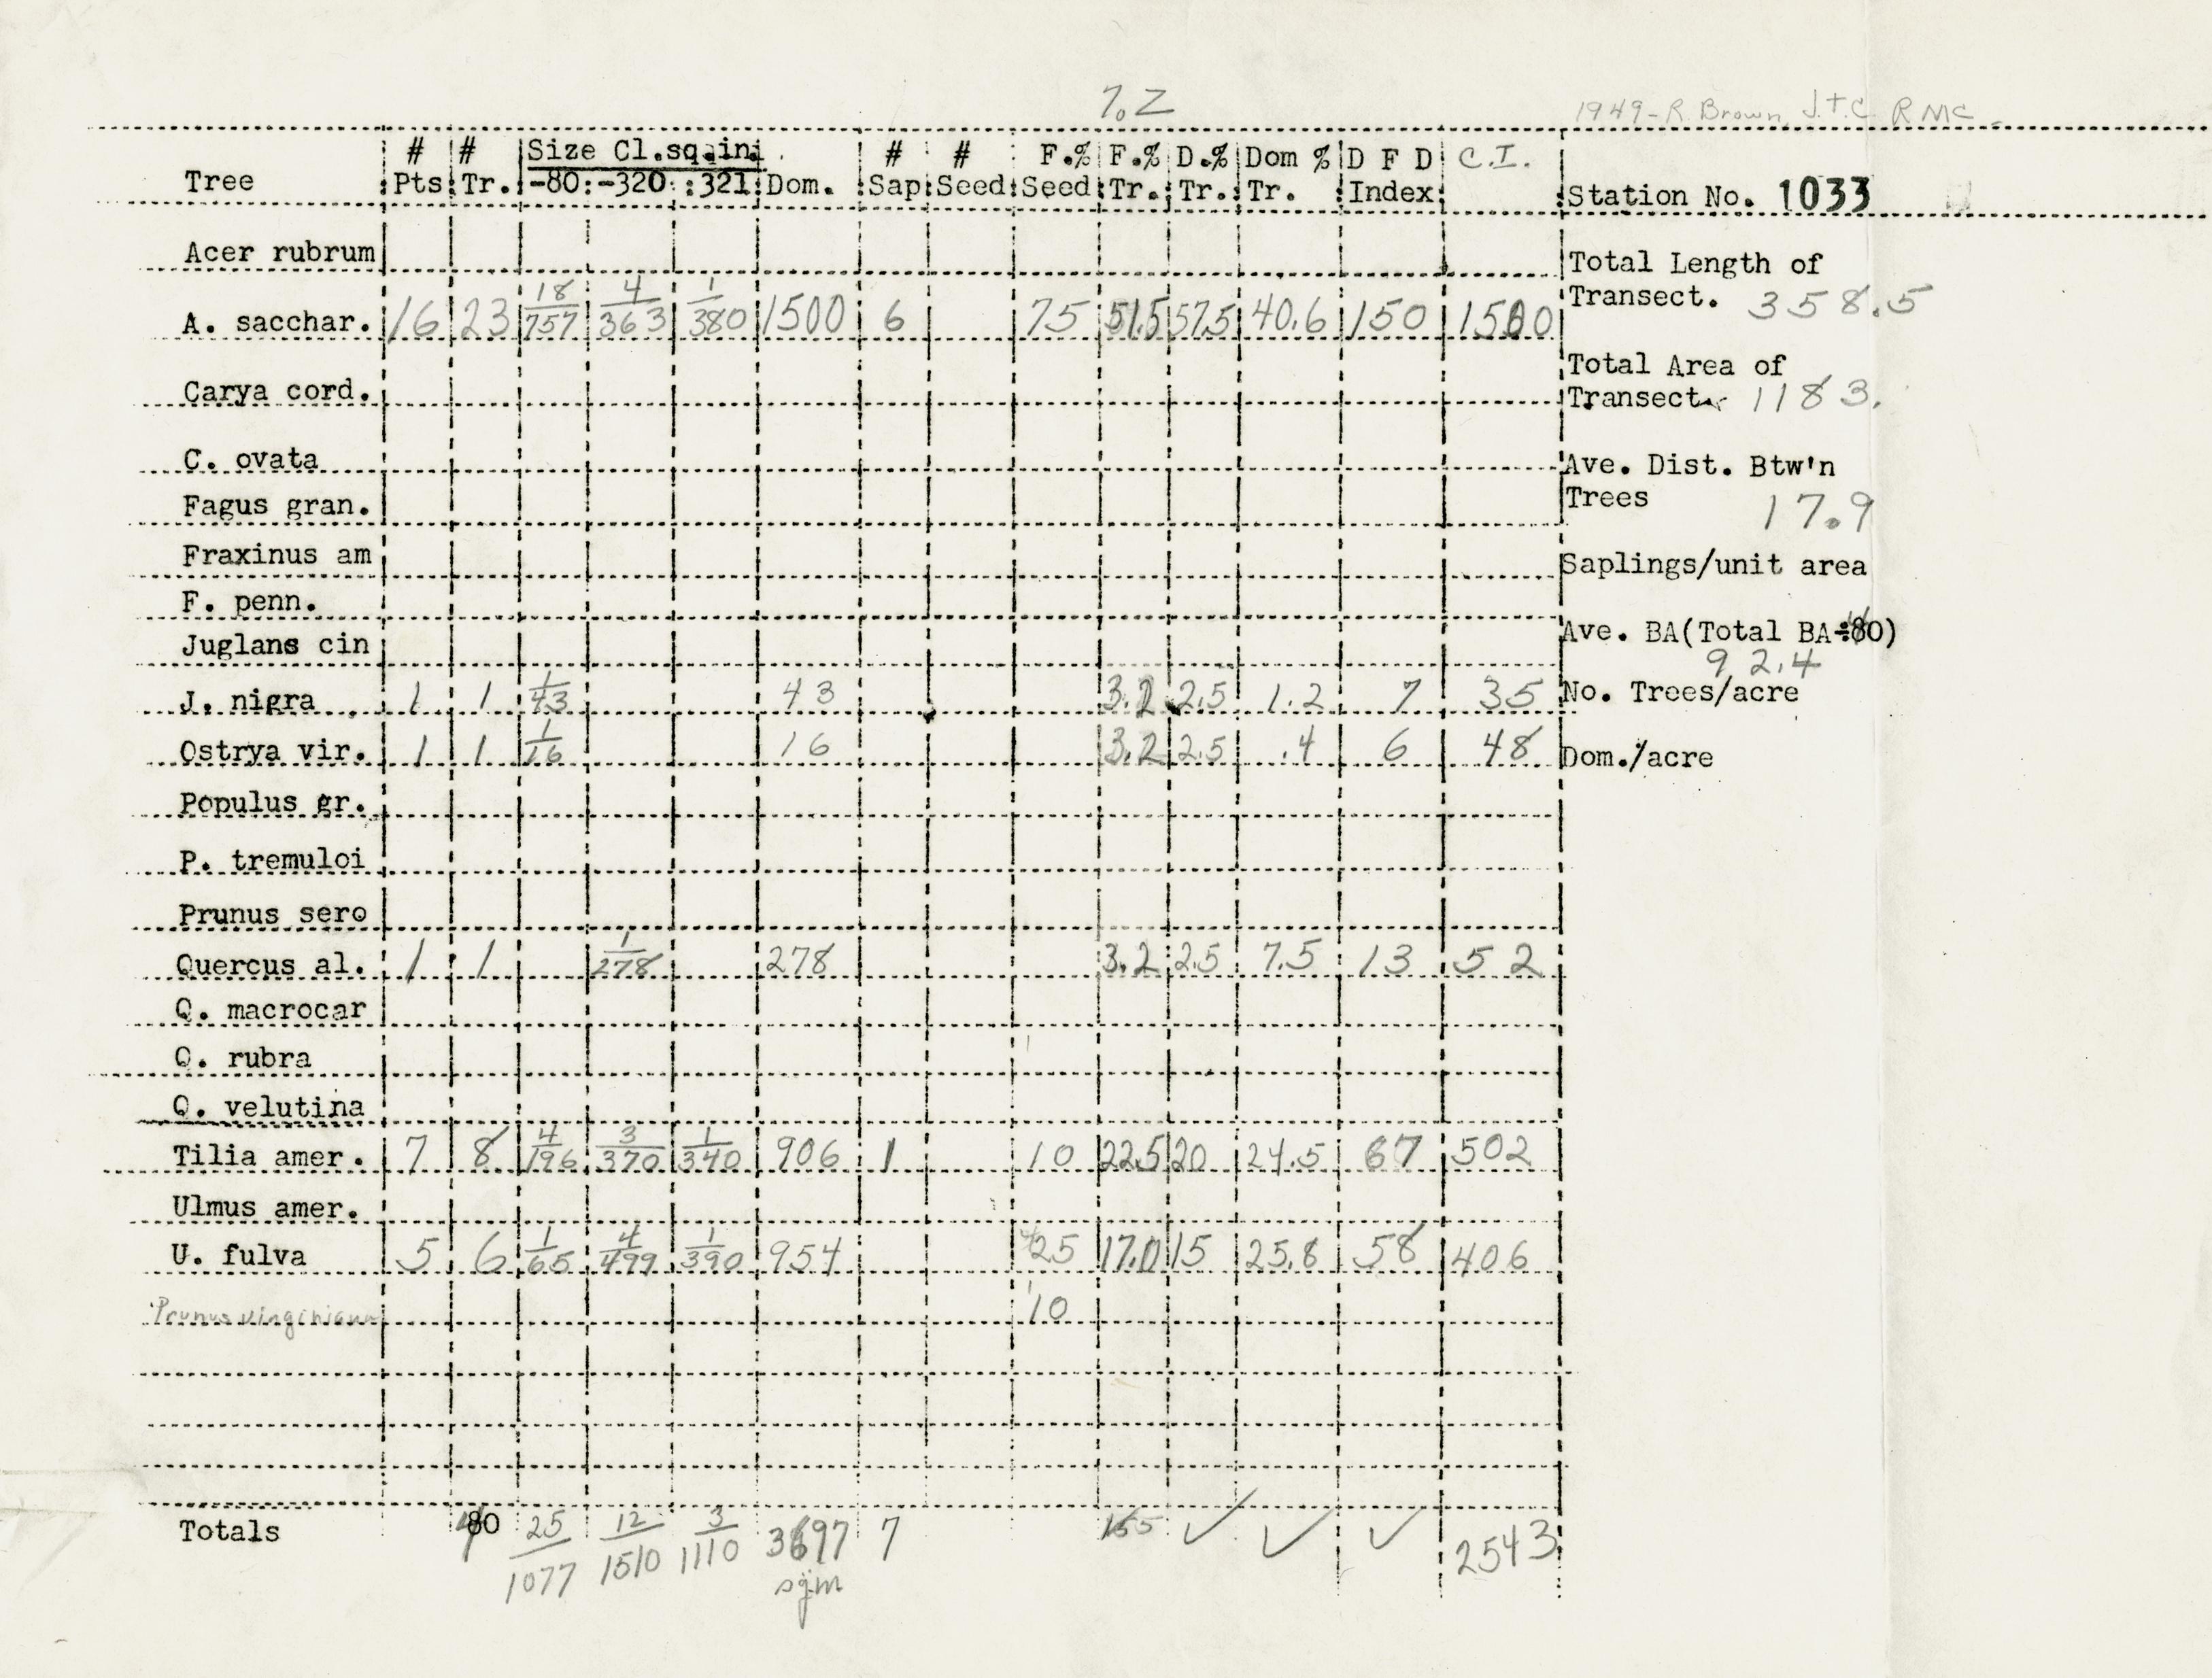 7.2
1949-R. Brown, J.T.C. RMC
# # Size Cl.sq.in. # # F.% F.% D.% Dom % D F D C.I.
Tree Pts Tr. -80:-320: :321: Dom. Sap Seed Seed Tr. Tr. Tr. Index Station No. 1033
Acer rubrum
Total Length of
Transect. 358.5
A. sacchar. 16 23 18/757 4/363 1/380 1500 6 75 51.5 57.5 40.6 150 1500
Total Area of
Carya cord.
Transect 1183.
C. ovata
Ave. Dist. Btw'n
Fagus gran.
Trees 17.9
Fraxinus am
Saplings/unit area
F. penn.
Juglans cin
Ave. BA(Total BA÷80)
92.4
J. nigra 1 1 1/43 43 3.2 2.5 1.2 7 35
No. Trees/acre
Ostrya vir. 1 1 1/16 16 3.2 2.5 .4 6 48
Dom./acre
Populus gr.
P. tremuloi
Prunus sero
Quercus al. 1 1 1/278 278 3.2 2.5 7.5 13 52
Q. macrocar
Q. rubra
Q. velutina
Tilia amer. 7 8 4/196 3/370 1/340 906 1 10 22.5 20 24.5 67 502
Ulmus amer.
U. fulva 5 6 1/65 4/499 1/390 954 25 17.0 15 25.8 58 406
Prunus virginiana 10
Totals 80 25/1077 12/1510 3/1110 3697 7 155 ✓ ✓ ✓ 2543
sqm